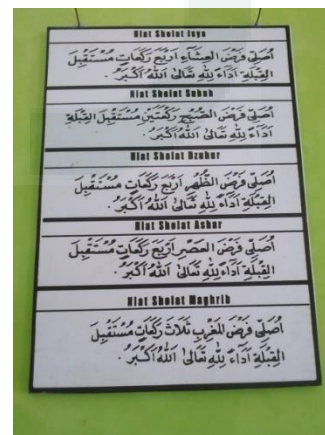 Niat Sholat Isya
اُصَلِّى فَرْضَ الْعِشَاءِ اَرْبَعَ رَكَعَاتٍ مُسْتَقْبِلَ
الْقِبْلَةِ اَدَاءً لِلّٰهِ تَعَالٰى اَللّٰهُ اَكْبَرُ .
Niat Sholat Subuh
اُصَلِّى فَرْضَ الصُّبْحِ رَكْعَتَيْنِ مُسْتَقْبِلَ الْقِبْلَةِ
اَدَاءً لِلّٰهِ تَعَالٰى اَللّٰهُ اَكْبَرُ .
Niat Sholat Dzuhur
اُصَلِّى فَرْضَ الظُّهْرِ اَرْبَعَ رَكَعَاتٍ مُسْتَقْبِلَ
الْقِبْلَةِ اَدَاءً لِلّٰهِ تَعَالٰى اَللّٰهُ اَكْبَرُ .
Niat Sholat Ashar
اُصَلِّى فَرْضَ الْعَصْرِ اَرْبَعَ رَكَعَاتٍ مُسْتَقْبِلَ
الْقِبْلَةِ اَدَاءً لِلّٰهِ تَعَالٰى اَللّٰهُ اَكْبَرُ .
Niat Sholat Maghrib
اُصَلِّى فَرْضَ الْمَغْرِبِ ثَلَاثَ رَكَعَاتٍ مُسْتَقْبِلَ
الْقِبْلَةِ اَدَاءً لِلّٰهِ تَعَالٰى اَللّٰهُ اَكْبَرُ .